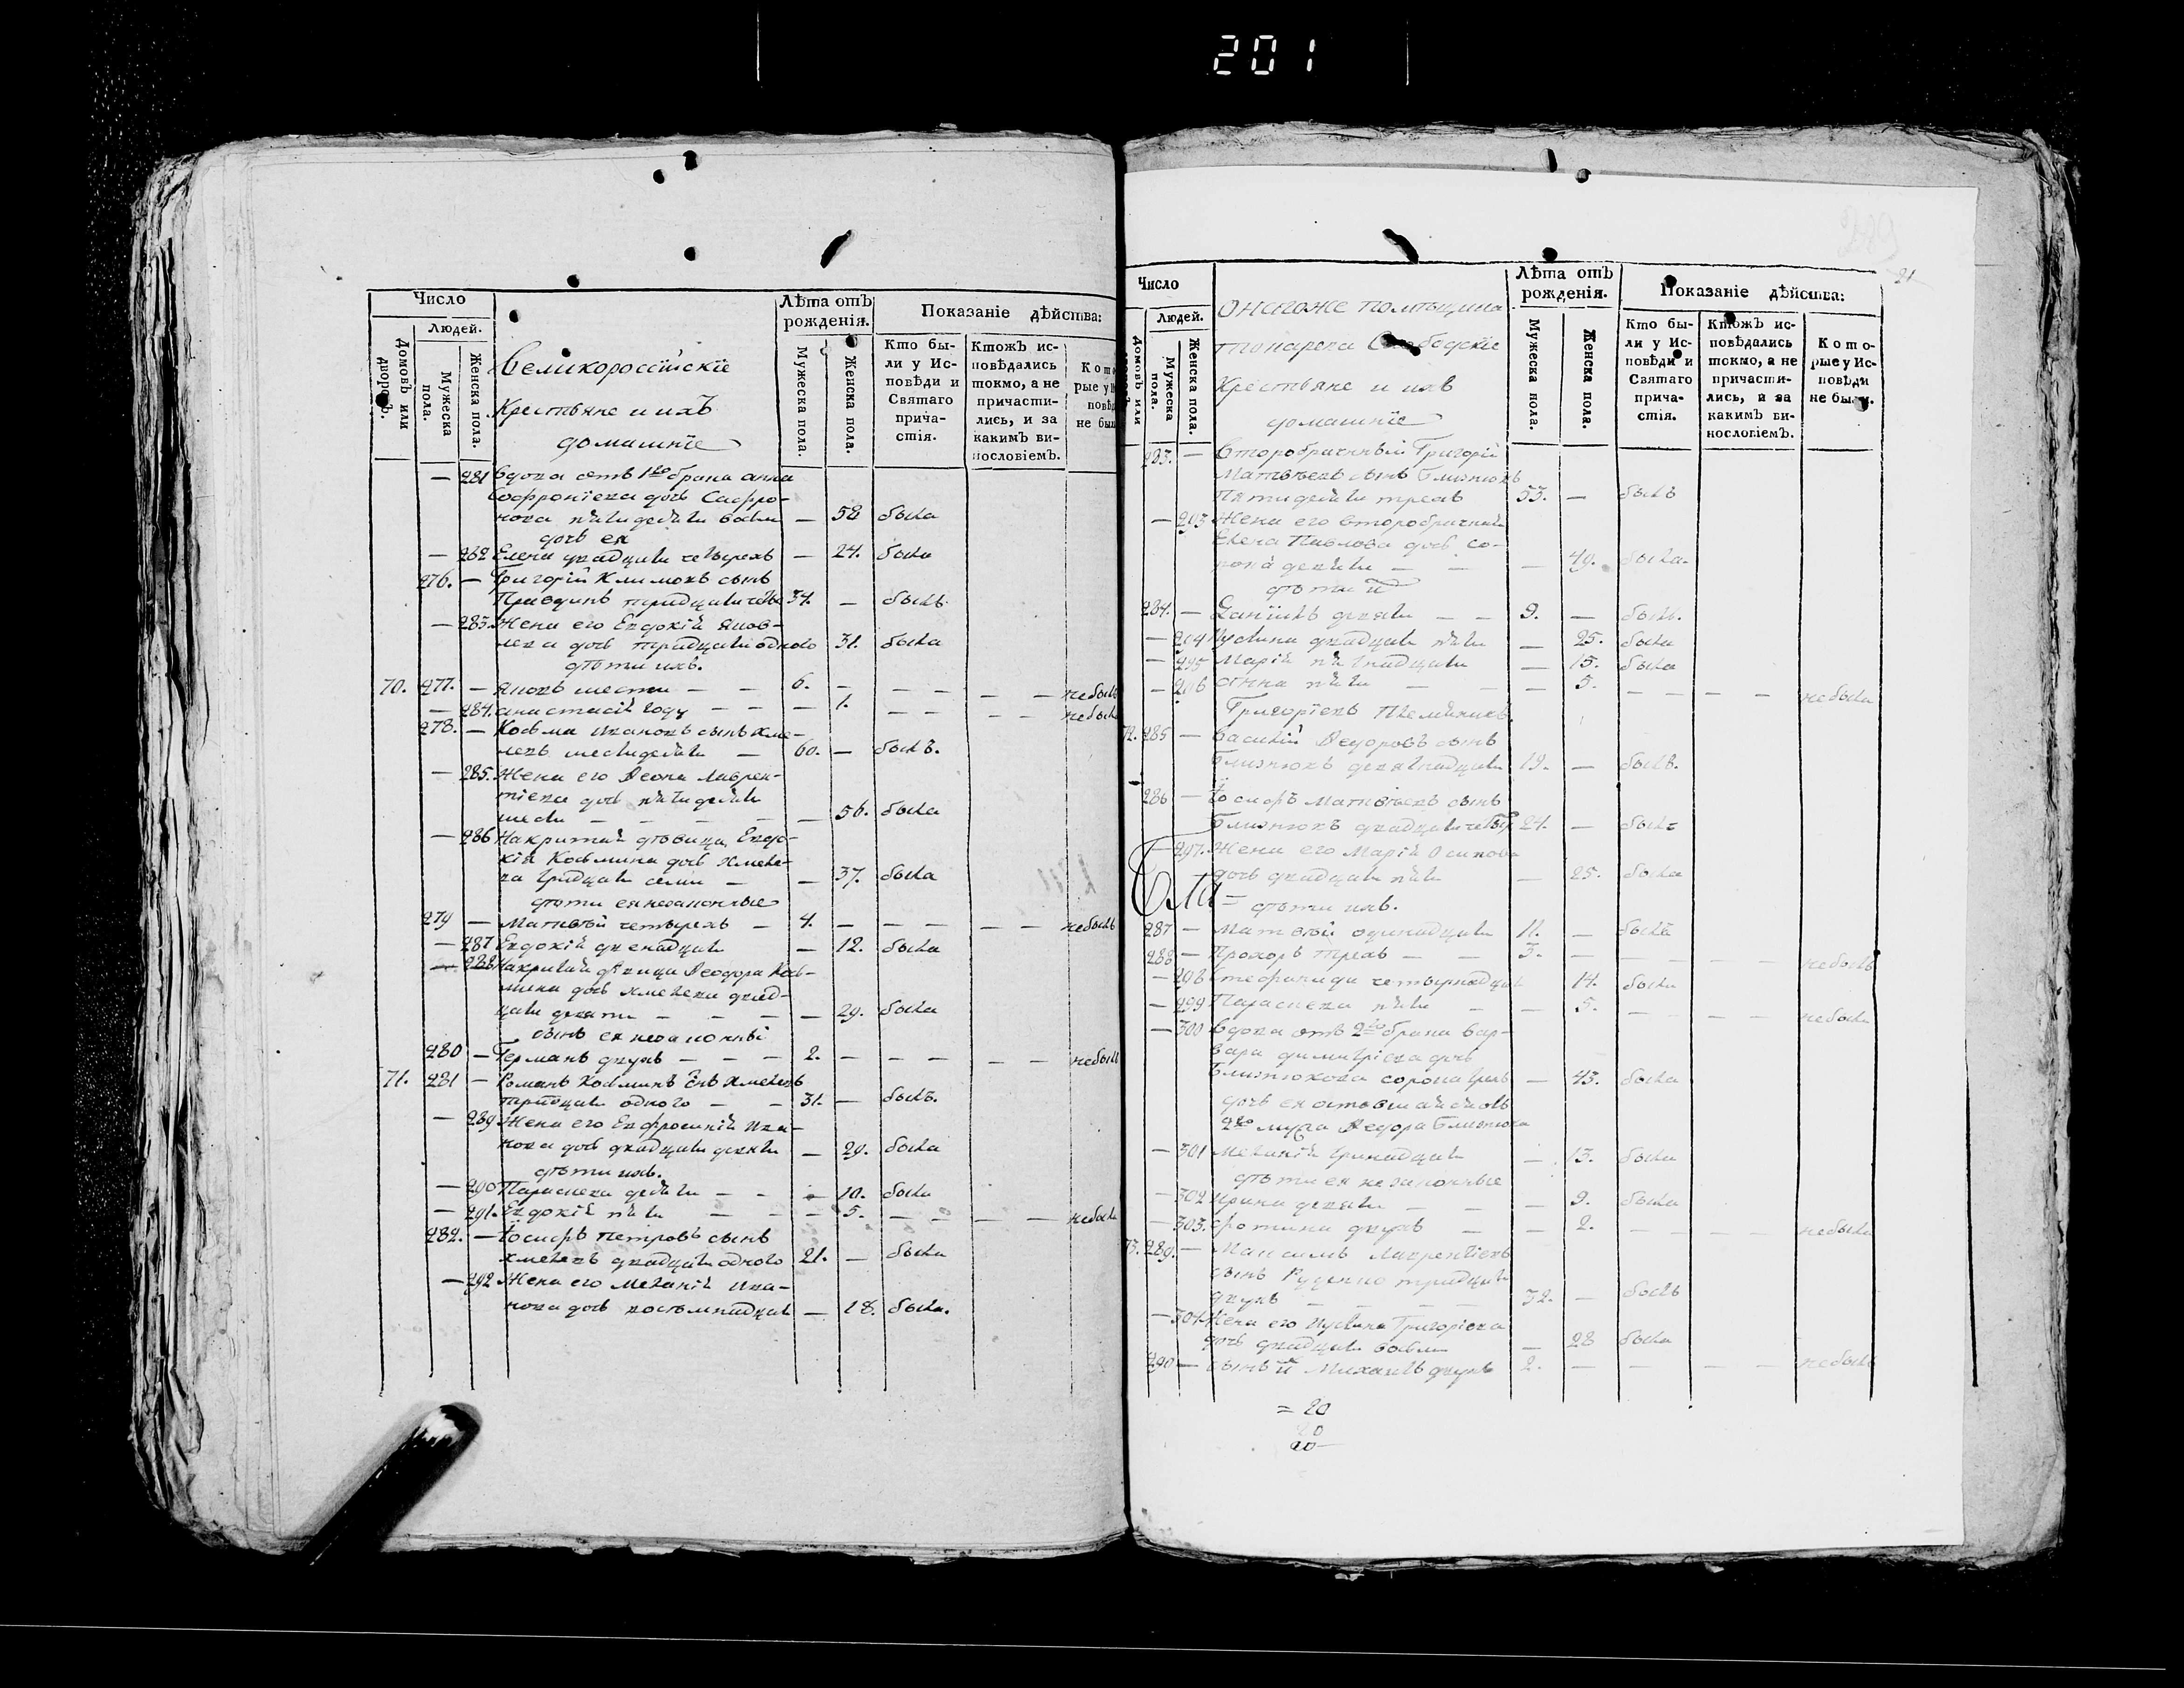 201
Число
Людей.
Домовъ или дворовъ.
Мужеска пола.
Женска пола.
Великороссійскіе
Крестьяне и ихъ
домашніе
Лѣта отъ
рожденія.
Мужеска пола.
Женска пола.
Показаніе дѣйства:
Кто бы-
ли у Ис-
повѣди и
Святаго
прича-
стія.
Ктожъ ис-
повѣдались
токмо, а не
причасти-
лись, и за
какимъ ви-
нословіемъ.
— 281 Вдова отъ 1го брака Анна
Софроніева дочь Сафро-
нова пятидесяти восьми — 58 была
дочь ея
— 282 Елена двадцати четырехъ — 24. была
276. — Григорій Климовъ сынъ
тридцати 34. — былъ
— 283. Жена его Евдокія Яков-
лева дочь тридцати одного 31. была
дѣти ихъ.
70. 277. — Яковъ шести — — 6. — — — — — небылъ
— 284. Анастасія году — — — 1. — — — — небыла
278. — Косьма Ивановъ сынъ Хме-
левъ шестидесяти — 60. — былъ.
— 285. Жена его Ѳеона Лаврен-
тіева дочь пятидесяти
шести — — — — 56. была
— 286 Накрытая дѣвица Евдо-
кія Косьмина дочь Хмеле-
ва тридцати семи — — 37. была
дѣти ея незаконные
279 — Матвѣй четырехъ — 4. — — — — — небылъ
— 287 Евдокія двенадцати — 12. была
— 288 Накрытая дѣвица Ѳеодора Кось-
мина дочь Хмелева двад-
цати девяти — — — — 29. была
сынъ ея незаконный
280 — Германъ двухъ — — — 2. — — — — — небылъ
71. 281 — Романъ Косьминъ снъ Хмелевъ
тридцати одного — — 31. — былъ.
— 289 Жена его Евфросинія Ива-
нова дочь двадцати девяти — 29. была
дѣти ихъ.
— 290 Параскева десяти — — — 10. была
— 291. Евдокія пяти — — — 5. — — — — небыла
282. — Іосифъ Петровъ сынъ
Хмелевъ двадцати одного 21. — былъ
— 292 Жена его Меланія Ива-
нова дочь восьмнадцати — 18. была.
21
Число
Людей.
Домовъ или
Мужеска пола.
Женска пола.
Онагоже помѣщика
Слободскіе
Крестьяне и ихъ
домашніе
Лѣта отъ
рожденія.
Мужеска пола.
Женска пола.
Показаніе дѣйства:
Кто бы-
ли у Ис-
повѣди и
Святаго
прича-
стія.
Ктожъ ис-
повѣдались
токмо, а не
причасти-
лись, и за
какимъ ви-
нословіемъ.
Кото-
рые у Ис-
повѣди
не были.
283. — Второбрачный Григорій
Матвѣевъ сынъ Близнюкъ
пятидесяти трехъ 53. — былъ
— 293 Жена его второбрачная
Елена Павлова дочь со-
рока девяти — — — 49. была.
дѣти
284. — Даніилъ девяти — — 9. — былъ.
— 294 Іустина двадцати пяти — 25. была
— 295 Марія пятнадцати — 15. была
— 296 Анна пяти — — — 5. — — — — небыла
Григоріевъ племянникъ
72. 285 — Василій Ѳедоровъ сынъ
Близнюкъ девятнадцати 19. — былъ.
286 — Іосифъ Матвѣевъ сынъ
Близнюкъ двадцати четыр 24. — былъ
— 297. Жена его Марія Осипова
дочь двадцати пяти — 25. была
дѣти ихъ.
287 — Матвѣй одинадцати 11. — былъ
288 — Прохоръ трехъ — — 3. — — — — — небылъ
— 298 Стефанида четырнадцати 14. была
— 299 Параскева пяти — 5. — — — — небыла
— 300 Вдова отъ 2го брака Вар-
вара Димитріева дочь
Близнюкова сорока трехъ — 43. была
дочь ея
2го мужа Ѳедора Близнюка
— 301 Меланія тринадцати — 13. была
дѣти ея незаконные
— 302 Ирина девяти — — — 9. была
— 303. Фотина двухъ — — 2. — — — — небыла
73. 289. — Максимъ Лаврентіевъ
сынъ Руденко тридцати
двухъ — — — 32. — былъ
— 304 Жена его Іустина Григоріева
дочь двадцати восьми — 28 была
290 — сынъ Михаилъ двухъ 2. — — — — — небылъ
= 20
20
20